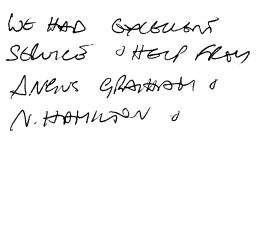 WE HAD EXCELLENT
SERVICE & HELP FROM
ANGUS GRAHAM &
N. HAMILTON &